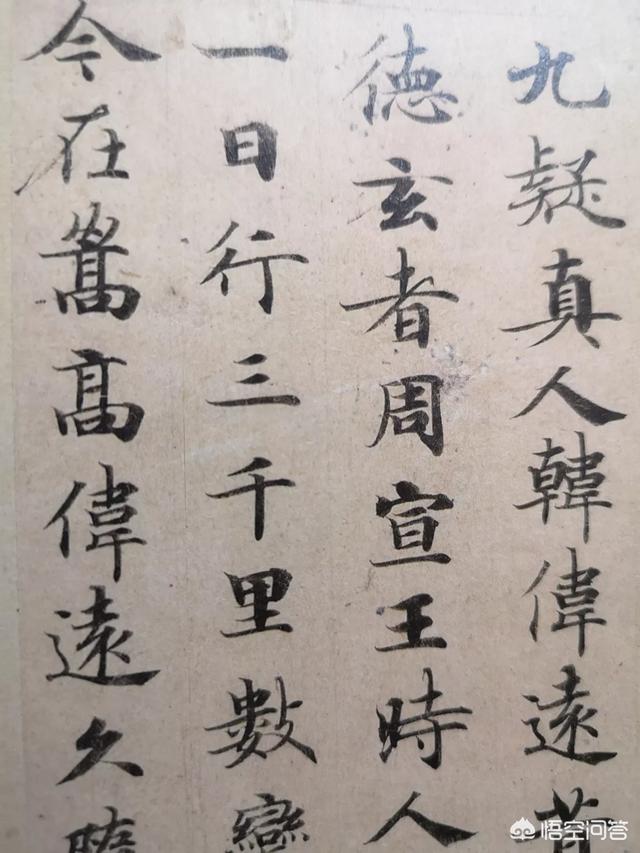 九疑真人韓偉遠昔
德玄者周宣王時人
一日行三千里數變
今在嵩高偉遠久隨
悟空问答